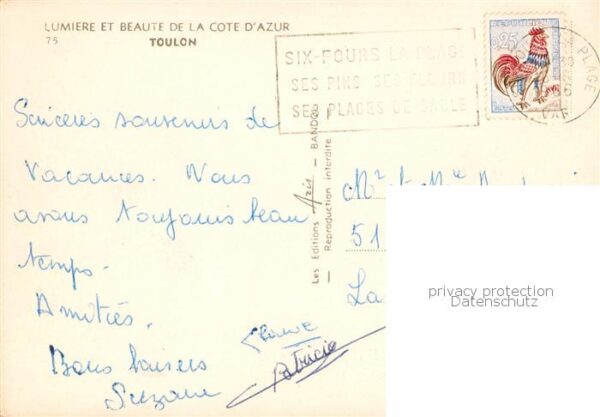 LUMIERE ET BEAUTE DE LA COTE D'AZUR
75 TOULON
SIX-FOURS LA PLAGE
SES PINS SES FLEURS
SES PLAGES DE SABLE
0,25
PLAGE
VAR
Sincères souvenirs de
Vacances. Nous
avons toujours beau
temps.
Amitiés.
Bons baisers
Suzanne
Patricia
Les Editions Aris - BANDOL
Reproduction interdite
Mr et Mme
51
La
privacy protection
Datenschutz